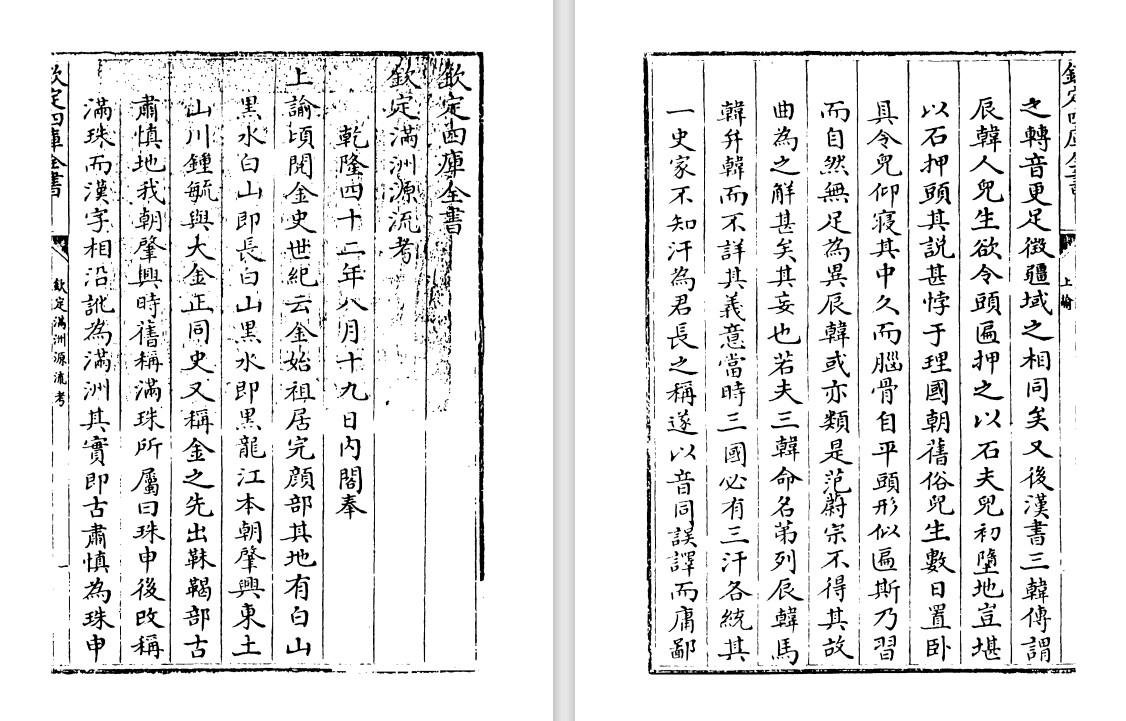 欽定四庫全書
欽定滿洲源流考
乾隆四十二年八月十九日內閣奉
上諭頃閱金史世紀云金始祖居完顏部其地有白山
黑水白山即長白山黑水即黑龍江本朝肇興東土
山川鍾毓與大金正同史又稱金之先出靺鞨部古
肅慎地我朝肇興時舊稱滿珠所屬曰珠申後改稱
滿珠而漢字相沿訛為滿洲其實即古肅慎為珠申
欽定四庫全書
欽定滿洲源流考
一
欽定四庫全書
上諭
之轉音更足徵疆域之相同矣又後漢書三韓傳謂
辰韓人兒生欲令頭匾押之以石夫兒初墮地豈堪
以石押頭其說甚悖于理國朝舊俗兒生數日置臥
具令兒仰寢其中久而腦骨自平頭形似匾斯乃習
而自然無足為異辰韓或亦類是范蔚宗不得其故
曲為之解甚矣其妄也若夫三韓命名弟列辰韓馬
韓弁韓而不詳其義意當時三國必有三汗各統其
一史家不知汗為君長之稱遂以音同誤譯而庸鄙